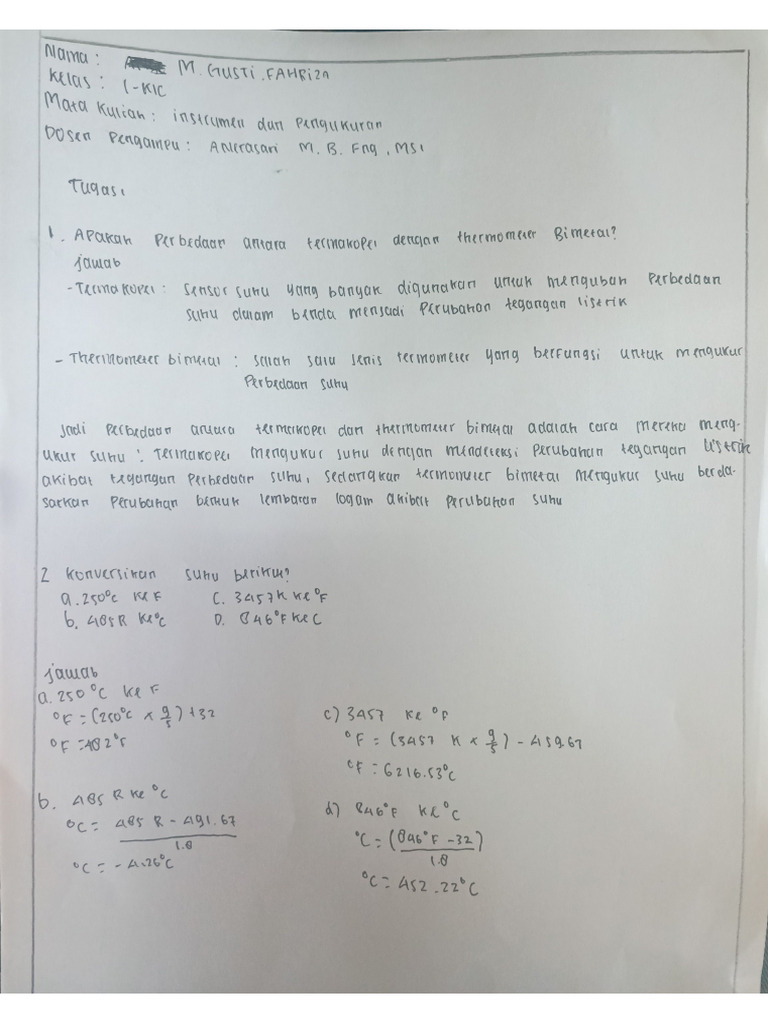 Nama : M. GUSTI. FAHRIZA
Kelas : 1-KIC
Mata Kuliah : instrumen dan Pengukuran
Dosen Pengampu : Anerasari M. B. Eng , MSi
Tugas,
1. Apakah Perbedaan antara termakopel dengan thermometer Bimetal?
jawab
- Termakopel : Sensor suhu yang banyak digunakan untuk mengubah Perbedaan
suhu dalam benda menjadi Perubahan tegangan listrik
- Thermometer bimetal : salah satu jenis termometer yang berfungsi untuk mengukur
Perbedaan suhu
Jadi Perbedaan antara termakopel dan thermometer bimetal adalah cara mereka meng-
ukur suhu : Termakopel mengukur suhu dengan mendeteksi Perubahan tegangan listrik
akibat tegangan Perbedaan suhu, sedangkan termometer bimetal mengukur suhu berda-
sarkan Perubahan bentuk lembaran logam akibat Perubahan suhu
2 Konversikan suhu berikut?
a. 250°C ke F C. 3457 K ke °F
b. 485 R ke °C D. 846°F ke C
jawab
a. 250 °C ke F
°F = (250°C x 9/5) + 32
°F = 482°F
b. 485 R ke °C
°C = 485 R - 491.67 / 1.8
°C = - 4.26°C
c) 3457 ke °F
°F = (3457 K x 9/5) - 459.67
°F = 6216.53°C
d) 846°F ke °C
°C = (846°F - 32) / 1.8
°C = 452.22°C